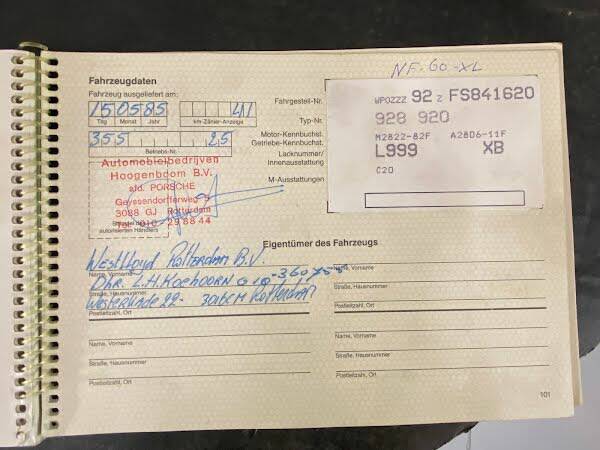 NF-60-XL
Fahrzeugdaten
Fahrzeug ausgeliefert am:
150585 41
Tag Monat Jahr km-Zähler-Anzeige
355 25
Betriebs-Nr.
Automobielbedrijven
Hoogenboom B.V.
afd. PORSCHE
Geyssendorfferweg 5
3088 GJ Rotterdam
Tel. 010 - 29 88 44
autorisierten Händlers
Fahrgestell-Nr.
Typ-Nr.
Motor-Kennbuchst.
Getriebe-Kennbuchst.
Lacknummer/
Innenausstattung
M-Ausstattungen
WPOZZZ 92 Z FS841620
928 920
M2822-82F A28D6-11F
L999 XB
C20
Eigentümer des Fahrzeugs
Westlloyd Rotterdam B.V.
Name, Vorname
Dhr. L.H. Koehoorn 010-360
Straße, Hausnummer
Westerlinde 22- Rotterdam
Postleitzahl, Ort
Name, Vorname
Straße, Hausnummer
Postleitzahl, Ort
Name, Vorname
Straße, Hausnummer
Postleitzahl, Ort
Name, Vorname
Straße, Hausnummer
Postleitzahl, Ort
101